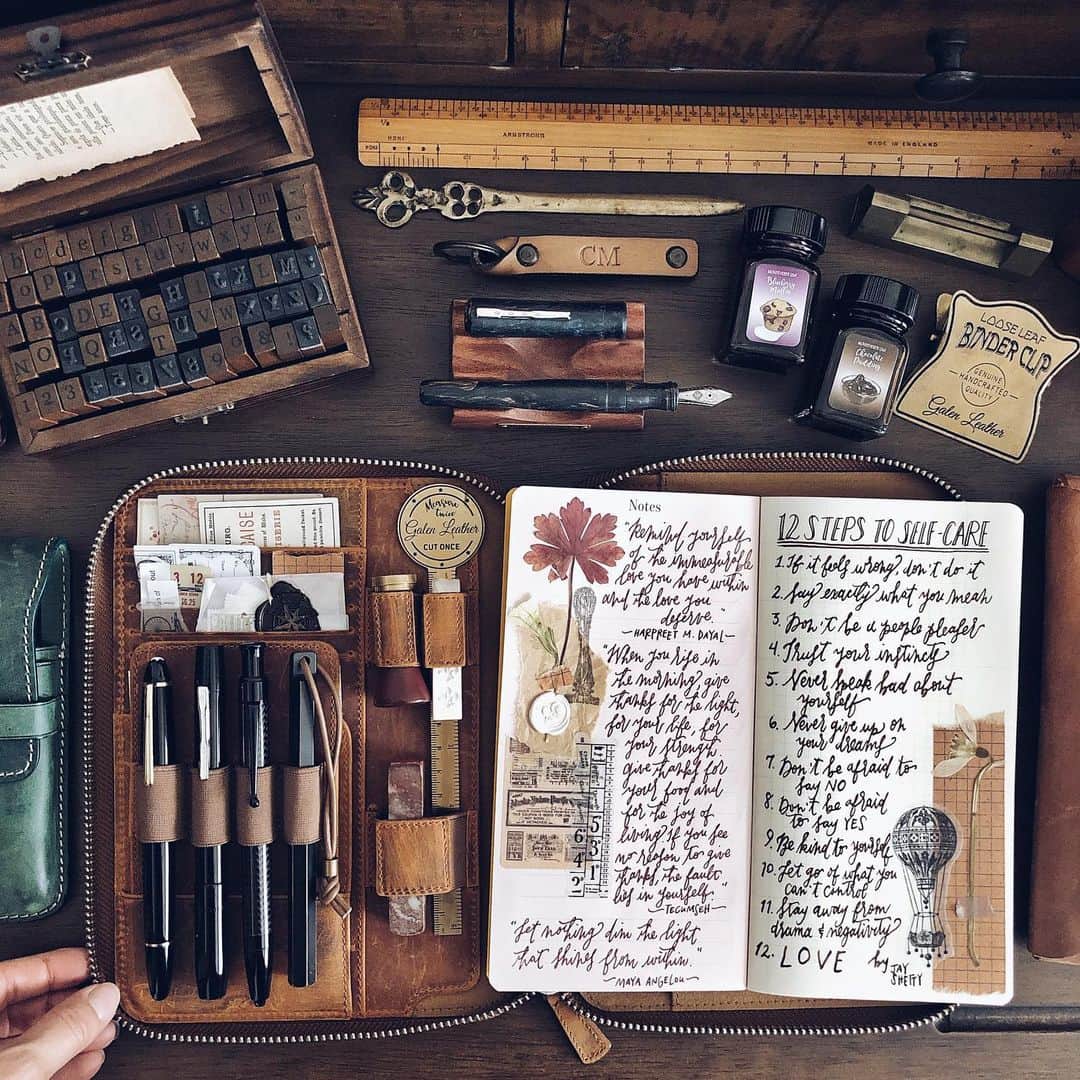 ARMSTRONG
MADE IN ENGLAND
CM
Blueberry
Muffin
Chocolate
Pudding
LOOSE LEAF
BINDER CLIP
GENUINE
HANDCRAFTED
QUALITY
Galen Leather
b c d e f g h i j k l m
o p q r s t u v w x y z
A B C D E F G H I J K L M
N O P Q R S T U V W X Y Z
1 2 3 4 5 6 7 8 9 0 &
Measure
twice
Galen Leather
CUT ONCE
3 12
Notes
"Remind yourself
of the immeasurable
love you have within
and the love you
deserve."
—HARPREET M. DAYAL—
"When you rise in
the morning, give
thanks for the light,
for your life, for
your strength.
Give thanks for
your food and
for the joy of
living. If you see
no reason to give
thanks, the fault
lies in yourself."
—TECUMSEH—
"Let nothing dim the light
that shines from within."
—MAYA ANGELOU—
12 STEPS TO SELF-CARE
1. If it feels wrong, don't do it
2. Say exactly what you mean
3. Don't be a people pleaser
4. Trust your instincts
5. Never speak bad about
yourself
6. Never give up on
your dreams
7. Don't be afraid to
say NO
8. Don't be afraid
to say YES
9. Be kind to yourself
10. Let go of what you
can't control
11. Stay away from
drama & negativity
12. LOVE
by JAY
SHETTY